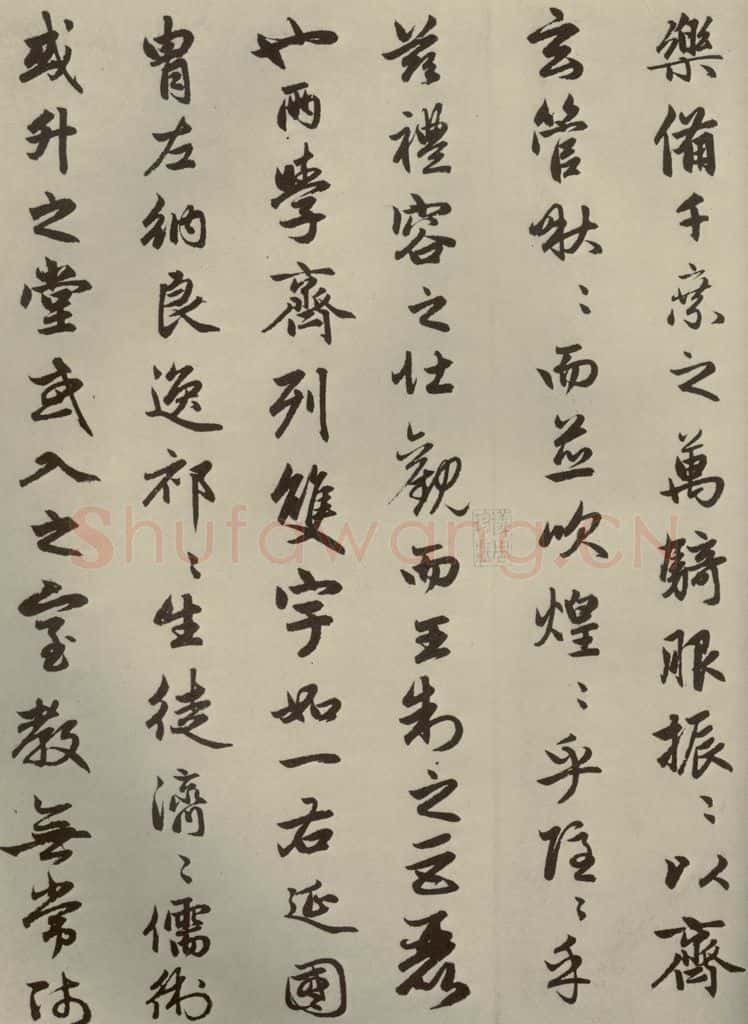 樂備千乘之萬騎服振〻以齊
玄管啾〻而並吹煌〻乎隱〻乎
茲禮容之壯觀而王制之巨麗
也兩學齊列雙宇如一右延國
胄左納良逸祁〻生徒濟〻儒術
或升之堂或入之室教無常師
Shufawang.CN